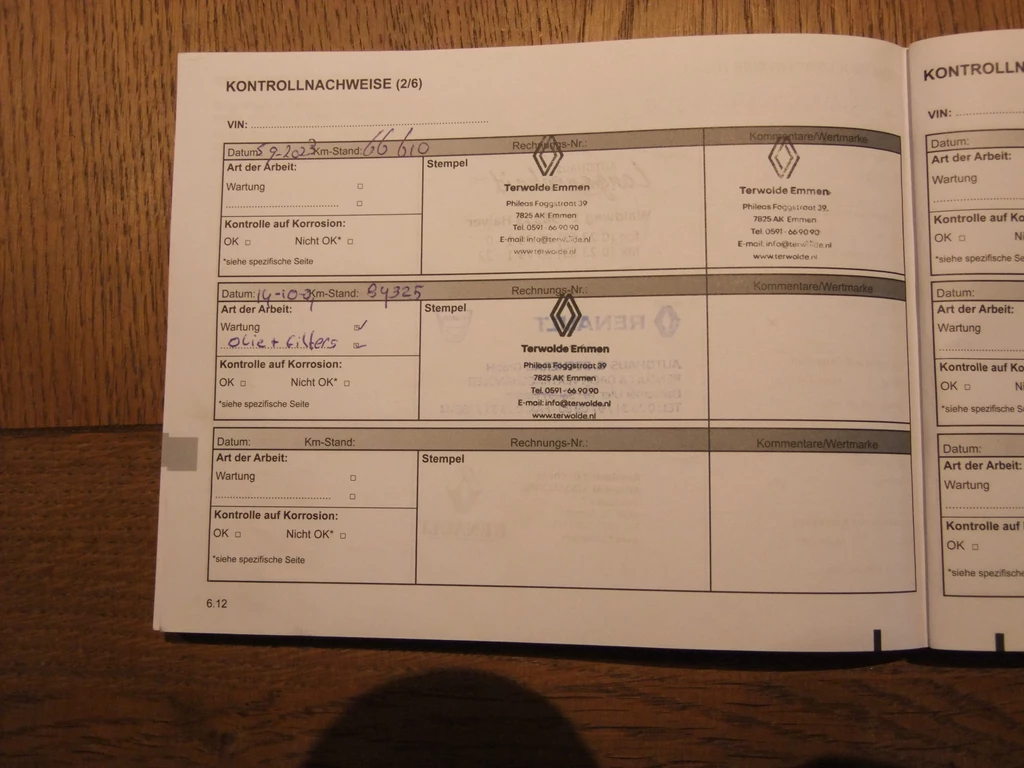 KONTROLLNACHWEISE (2/6)
VIN:
Datum: 5-9-2023 Km-Stand: 66 610 Rechnungs-Nr.: Kommentare/Wertmarke
Art der Arbeit:
Wartung
Kontrolle auf Korrosion:
OK Nicht OK*
*siehe spezifische Seite
Stempel
Terwolde Emmen
Phileas Foggstraat 39
7825 AK Emmen
Tel. 0591 - 66 90 90
E-mail: info@terwolde.nl
www.terwolde.nl
Terwolde Emmen
Phileas Foggstraat 39,
7825 AK Emmen
Tel. 0591 - 66 90 90
E-mail: info@terwolde.nl
www.terwolde.nl
Datum: 14-10- Km-Stand: 94325 Rechnungs-Nr.: Kommentare/Wertmarke
Art der Arbeit:
Wartung
olie + filters
Kontrolle auf Korrosion:
OK Nicht OK*
*siehe spezifische Seite
Stempel
Terwolde Emmen
Phileas Foggstraat 39
7825 AK Emmen
Tel. 0591 - 66 90 90
E-mail: info@terwolde.nl
www.terwolde.nl
Datum: Km-Stand: Rechnungs-Nr.: Kommentare/Wertmarke
Art der Arbeit:
Wartung
Kontrolle auf Korrosion:
OK Nicht OK*
*siehe spezifische Seite
Stempel
6.12
KONTROLLN
VIN:
Datum:
Art der Arbeit:
Wartung
Kontrolle auf Ko
OK
*siehe spezifische
Datum:
Art der Arbeit:
Wartung
Kontrolle auf Ko
OK
*siehe spezifische
Datum:
Art der Arbeit:
Wartung
Kontrolle auf
OK
*siehe spezifische